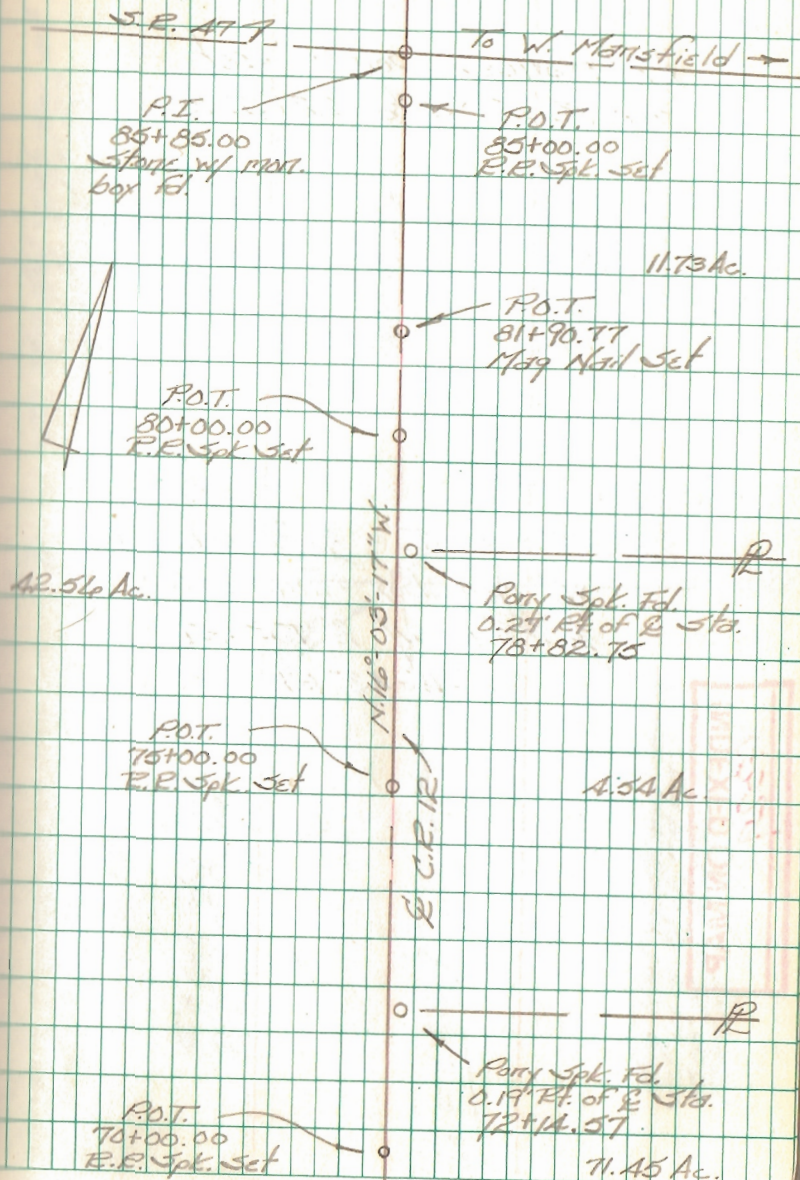 S.R. 47
To W. Mansfield
P.I.
85+85.00
Stone w/ mon.
box fd.
P.O.T.
85+00.00
R.R. Spk. Set
11.73 Ac.
P.O.T.
81+90.77
Mag Nail Set
P.O.T.
80+00.00
R.R. Spk Set
PL
42.56 Ac.
N.16°-03'-17"W.
Pony Spk. Fd.
0.27' Rt. of ℄ Sta.
78+82.75
P.O.T.
75+00.00
R.R. Spk. Set
4.54 Ac.
℄ C.R. 12
PL
Pony Spk. Fd.
0.19' Rt. of ℄ Sta.
72+14.57
P.O.T.
70+00.00
R.R. Spk. Set
71.45 Ac.